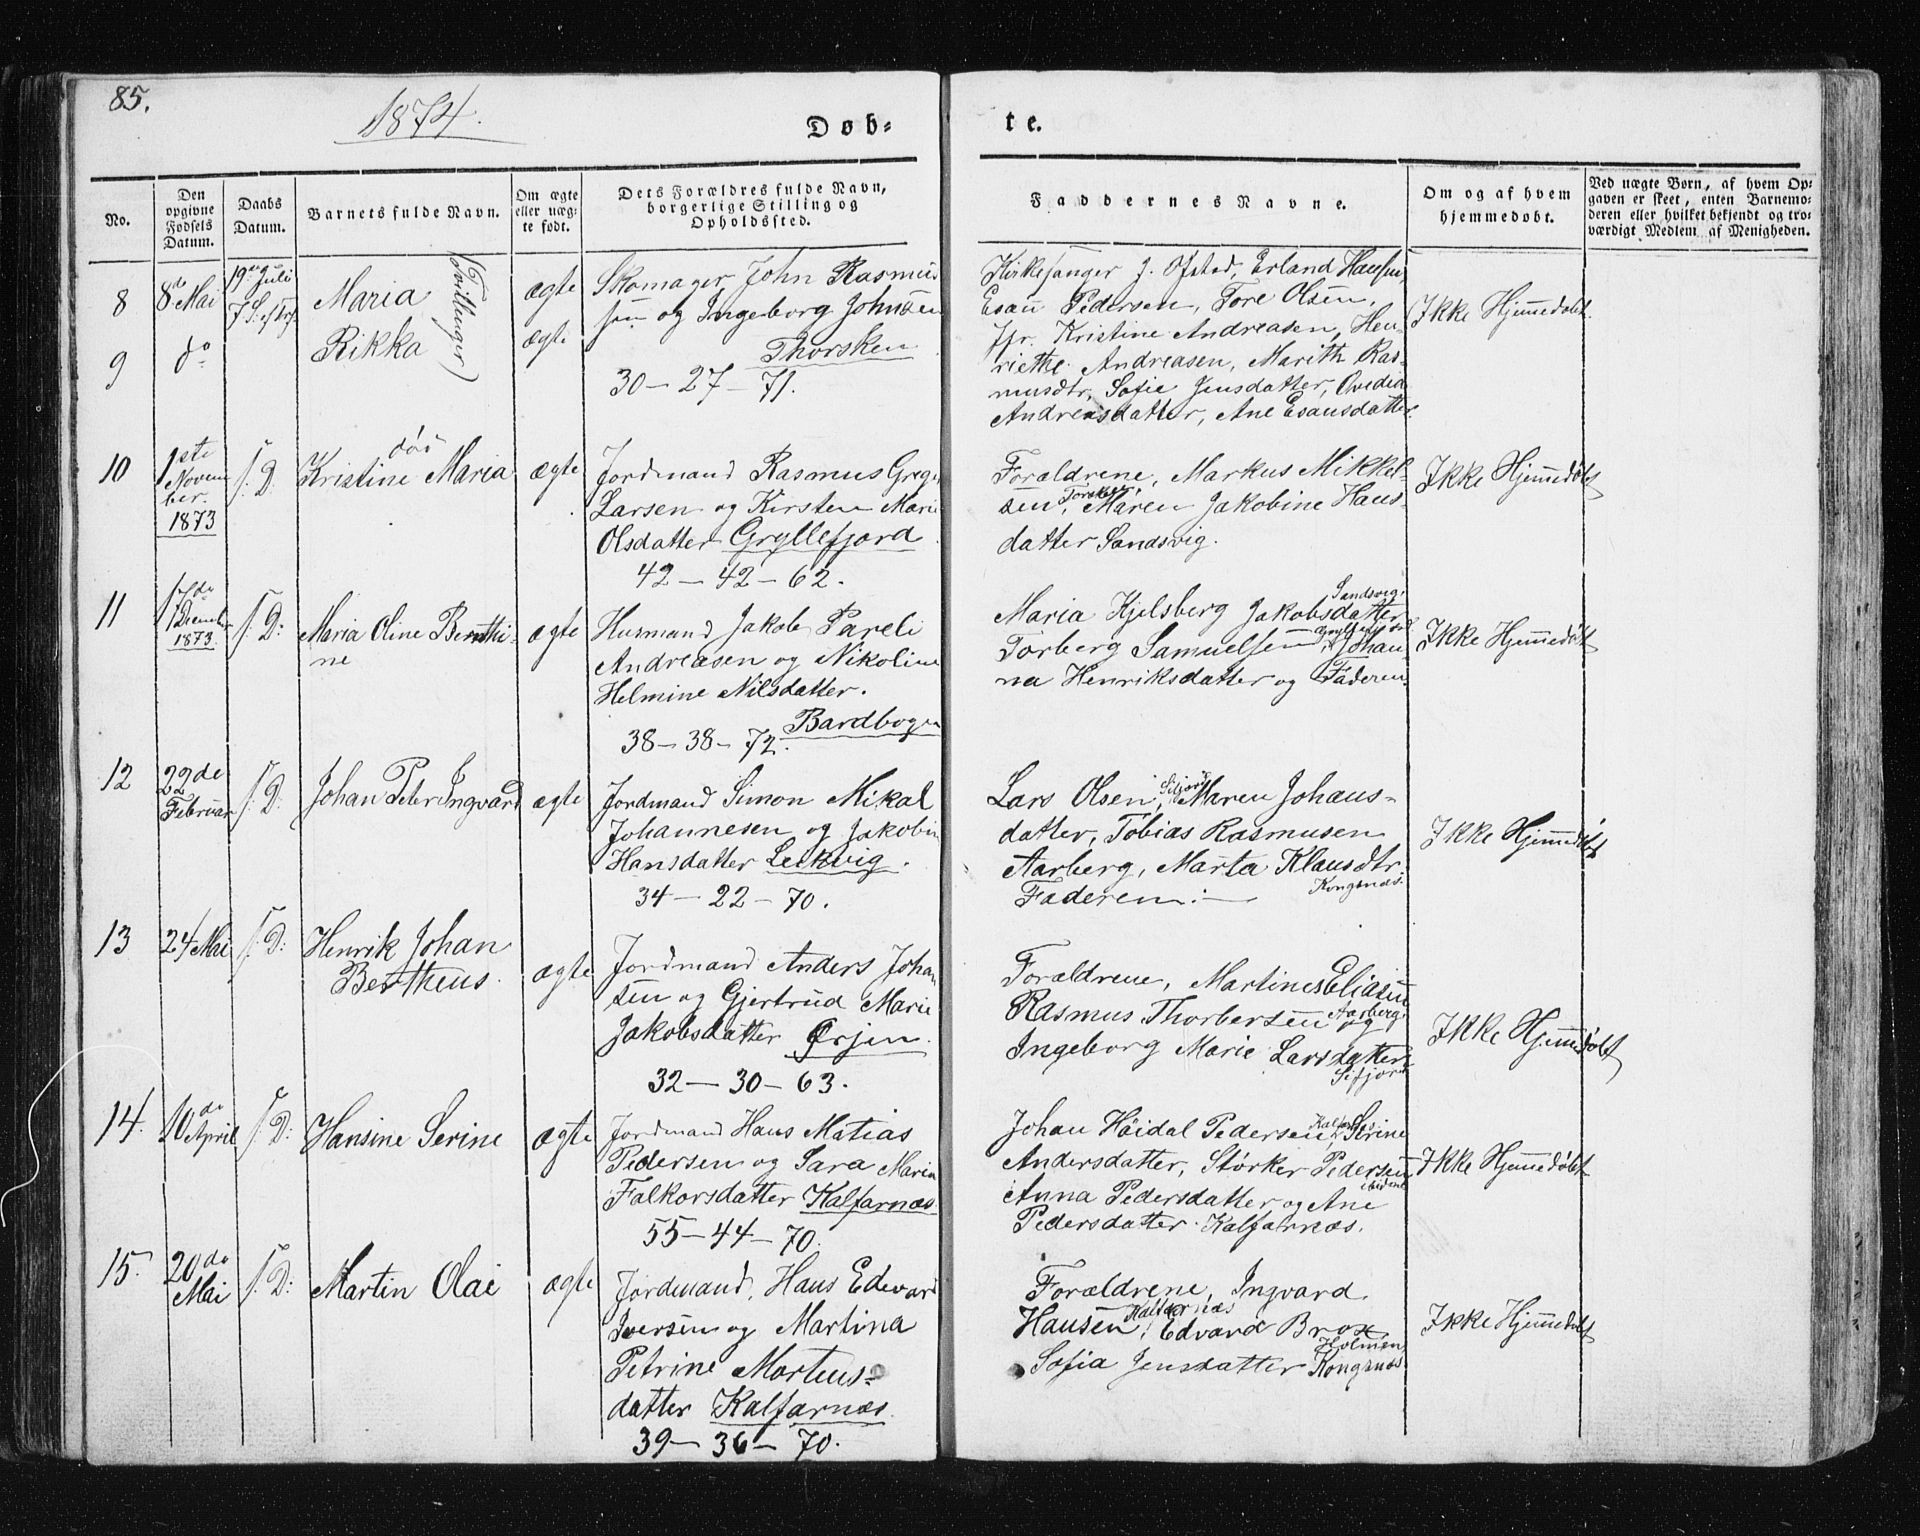 85.
1874.
Døb-
te.
No.
Den opgivne Fødsels Datum.
Daabs Datum.
Barnets fulde Navn.
Om ægte eller uægte født.
Dets Forældres fulde Navn, borgerlige Stilling og Opholdssted.
Faddernes Navne.
Om og af hvem hjemmedøbt.
Ved uægte Børn, af hvem Opgaven er skeet, enten Barnemoderen eller hvilket bekjendt og troværdigt Medlem af Menigheden.
8
8de Mai
19de Juli
7 S. e. Tr.
Maria
(Tvillinger)
ægte
Skomager John Rasmus
sen og Ingeborg Johnsen
Thorsken
30 - 27 - 71.
9
do
Rikka
ægte
Kirkesanger J. Ofstad, Erland Hansen,
Esau Pedersen, Tore Olsen,
Jfr. Kristine Andreasen, Hen-
riethe Andreasen, Marith Ras-
musdtr, Sofie Jensdatter, Ovedia
Andreasdatter, Ane Esausdatter
Ikke Hjemmedøbt.
10
1ste
Novem
ber.
1873
s. D.
døi
Kristine Maria
ægte
Jordmand Rasmus Greg.
Larsen og Kirsten Marie
Olsdatter Gryllefjord
42 - 42 - 62.
Forældrene, Markus Mikkel-
sen, Torsken, Maren Jakobine Hans-
datter Sandsvig.
Ikke Hjemmedøbt
11
17de
December
1873.
s. D:
Maria Oline Bernthi-
ne
ægte
Husmand Jakob Pareli
Andreasen og Nikoline
Helmine Nilsdatter.
Bardbogen
38 - 38 - 72.
Maria Kjelsberg Jakobsdatter Sandsvig,
Torberg Samuelsen Gryllefjord, Johan-
na Henriksdatter og Faderen.
Ikke Hjemmedøbt
12
22de
Februar
s. D:
Johan Peter Ingvard
ægte
Jordmand Simon Mikal
Johannesen og Jakobine
Hansdatter Lekvig.
34 - 22 - 70.
Lars Olsen, Sifjord Maren Johans-
datter, Tobias Rasmusen
Aarberg, Marta Klausdtr.
Kongsnæs.
Faderen.
Ikke Hjemmedøbt
13
24 Mai
s. D:
Henrik Johan
Bertheus.
ægte
Jordmand Anders Johan
sen og Gjertrud Marie
Jakobsdatter Ørjen.
32 - 30 - 63.
Forældrene, Martines Eliasen
Rasmus Thorbersen Aarberg, og
Ingeborg Marie Larsdatter
Sifjord
Ikke Hjemmedøbt
14.
10de
April
s. D:
Hansine Serine
ægte
Jordmand Hans Matias
Pedersen og Sara Maria
Falkorsdatter Kalfarnæs.
55 - 44 - 70.
Johan Høidal Pedersen, Kalfarnæs, Serine
Andersdatter, Størker Pedersen
ibidem
Anna Pedersdatter og Ane
Pedersdatter Kalfarnæs.
Ikke Hjemmedøbt
15.
20de
Mai
s. D:
Martin Olai
ægte
Jordmand, Hans Edvard
Iversen og Martina
Petrine Mortens-
datter Kalfarnæs.
39 - 36 - 70.
Forældrene, Ingvard
Hansen, Kalfarnæs Edvard Brox
Holmen
Sofia Jensdatter Kongsnæs
Ikke Hjemmedøbt